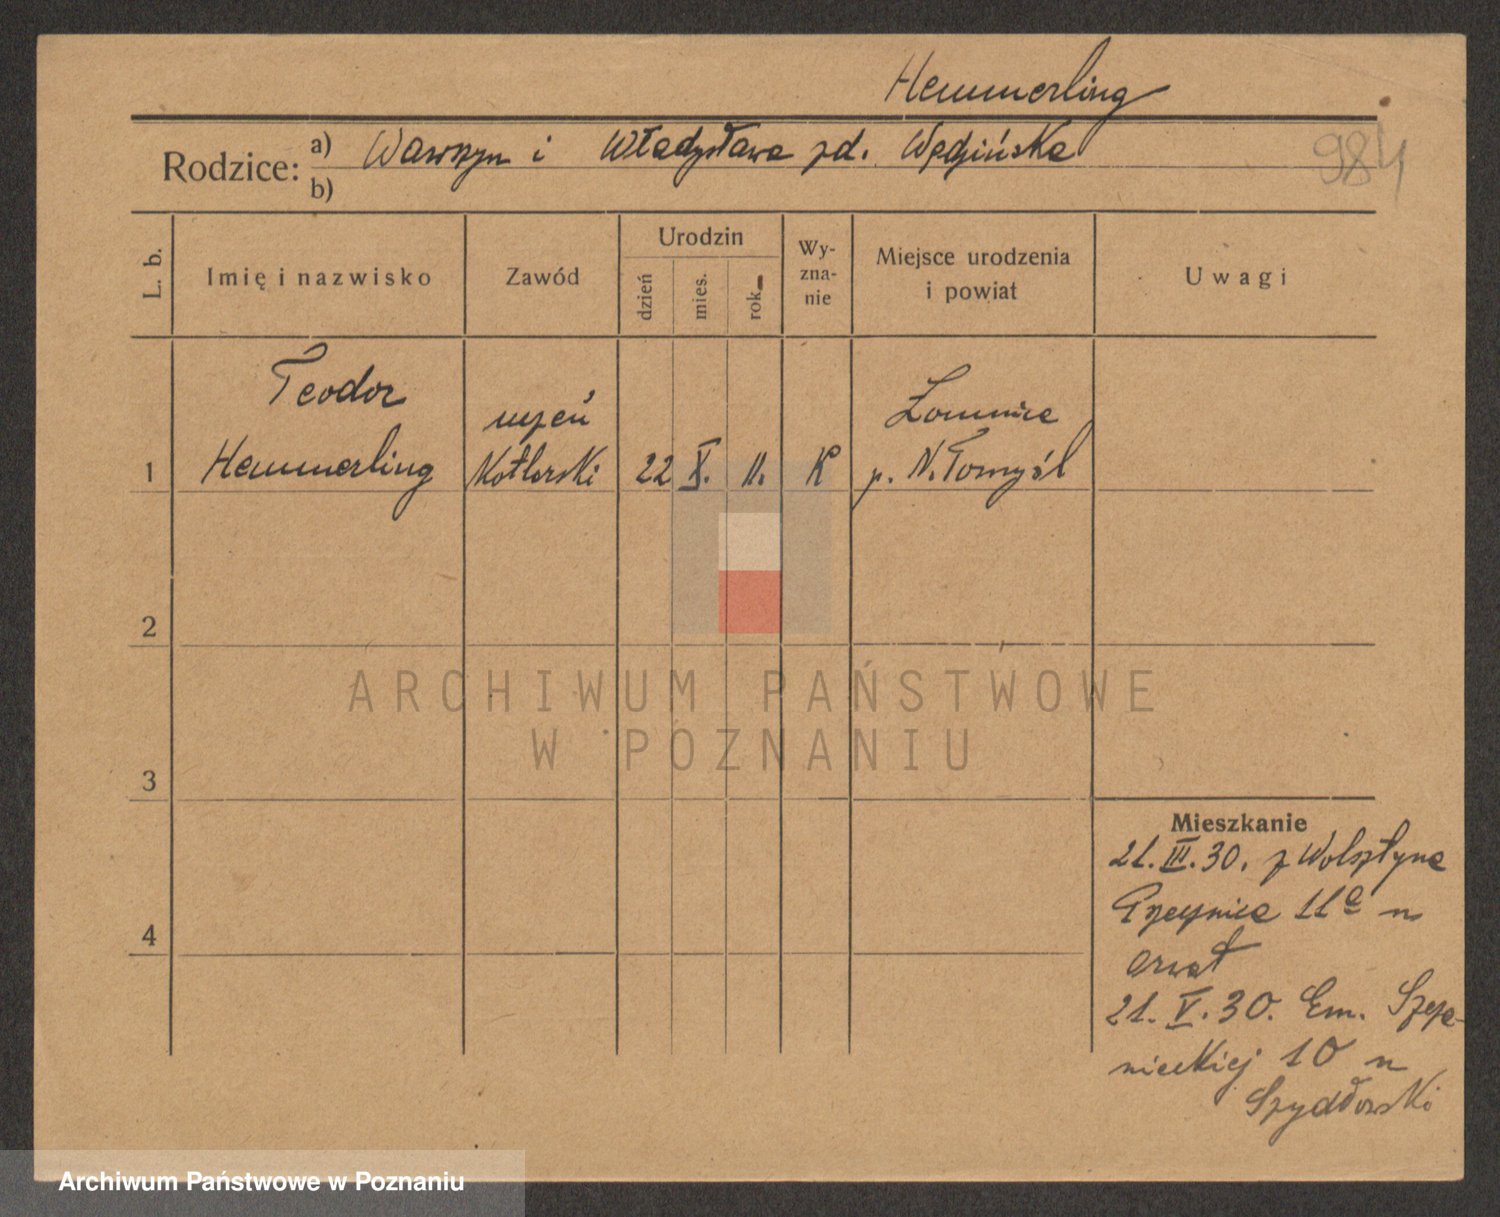 Hemmerling
Rodzice: a) Wawrzyn i Władysława zd. Wędzińska
b)
984
L. b.
Imię i nazwisko
Zawód
Urodzin
dzień
mies.
rok
Wy-
zna-
nie
Miejsce urodzenia
i powiat
Uwagi
1
Teodor
Hemmerling
uczeń
Kotlarski
22
X.
11.
K
Łomnica
p. N. Tomyśl
2
3
4
ARCHIWUM PAŃSTWOWE
W POZNANIU
Mieszkanie
21. III. 30. z Wolsztyna
11a n
21. V. 30. Em. Szcza-
nieckiej 10 n
Szydłowski
Archiwum Państwowe w Poznaniu